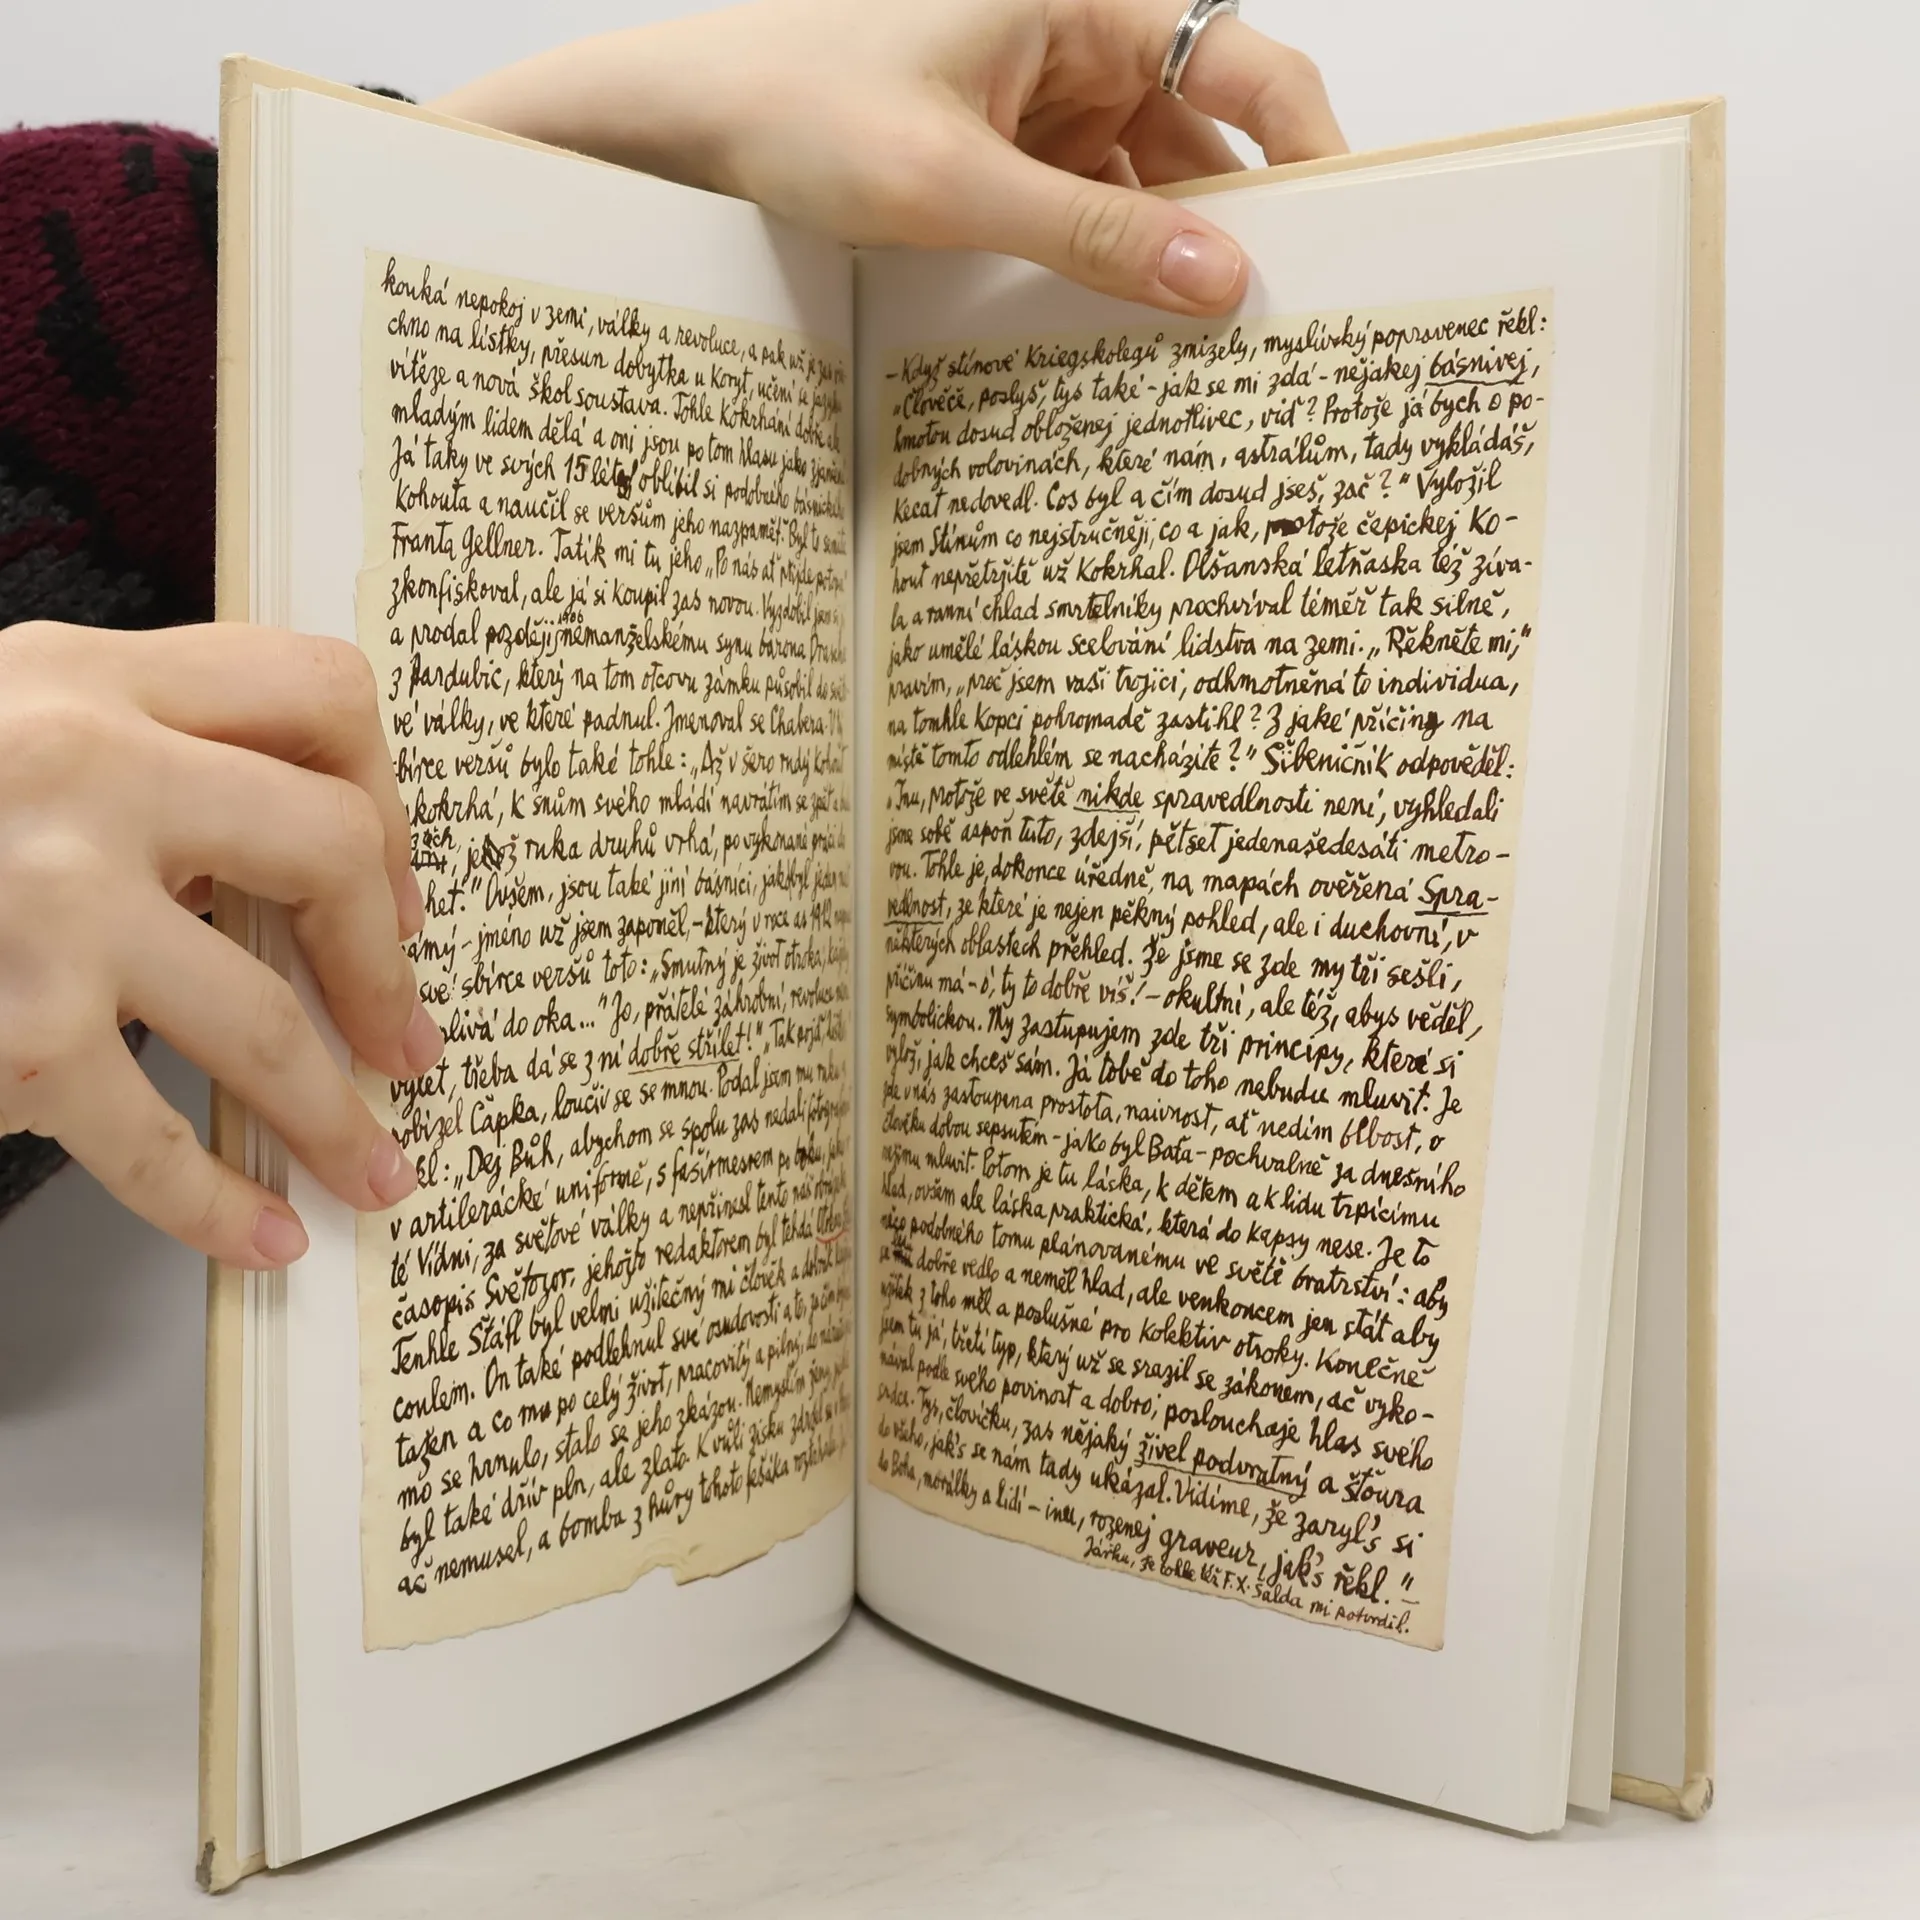 kouká nepokoj v zemi, války a revoluce, a pak už je zas
chno na lístky, přesun dobytka u Koryt, učení se
vítěze a nová škol soustava. Tohle Kokrhání dobře
mladým lidem dělá a oni jsou potom hlasu jako
Já taky ve svých 15 létech oblíbil si podobného
Kohouta a naučil se veršům jeho nazpaměť. Byl to
Franta Gellner. Tatík mi tu jeho „Po nás ať přijde
zkonfiskoval, ale já si koupil zas novou. Vyzdobil jsem
a prodal později 1906 nemanželskému synu barona
z Pardubic, který na tom otcovu zámku působil do
vé války, ve které padnul. Jmenoval se Chabera.
sbírce veršů bylo také tohle: „Až v šero rudý Kohout
kokrhá, k snům svého mládí navrátím se zpět a
jehož ruka druhů vrhá, po vykonané práci
het." Ovšem, jsou také jiní básníci, jakobyl jeden
ámý – jméno už jsem zapoměl, – který v roce as 1912
své sbírce veršů toto: „Smutný je život otroka,
plivá do oka..." Jo, přátelé záhrobní,
výlet, třeba dá se z ní dobře střílet!" „Tak pojď,
pobízel Čapka, loučiv se se mnou. Podal jsem mu ruku
kl: „Dej Bůh, abychom se spolu zas nedali
v artilerácké uniformě, s fašírmesrem po boku,
té Vídni, za světové války a nepřinesl tento náš
časopis Světozor, jehožto redaktorem byl tehdá
Tenhle Štáfl byl velmi užitečný mi člověk a dobrák
coulem. On také podlehnul své osudovosti a to,
tažen a co mu po celý život, pracovitý a pilný,
mo se hrnulo, stalo se jeho zkázou. Nemyslím ženy,
byl také dřív pln, ale zlato. K vůli zisku zdržel se
ač nemusel, a bomba z hůry tohoto fešáka
– Když stínové Kriegskolegů zmizely, myslivský popravenec řekl:
„Člověče, poslyš, tys také – jak se mi zdá – nějakej básnivej,
hmotou dosud obloženej jednotlivec, viď? Protože já bych o po-
dobných volovinách, které nám, astrálům, tady vykládáš,
kecat nedovedl. Cos byl a čím dosud jseš, zač?" Vyložil
jsem Stínům co nejstručněji, co a jak, protože čepickej Ko-
hout nepřetržitě už Kokrhal. Olšanská letňaska též zíva-
la a ranní chlad smrtelníky prochvíval téměř tak silně,
jako umělé láskou scelování lidstva na zemi. „Řekněte mi,"
pravím, „proč jsem vaši trojici, odhmotněná to individua,
na tomhle Kopci pohromadě zastihl? Z jaké příčiny na
místě tomto odlehlém se nacházíte?" Šibeničník odpověděl:
„Inu, protože ve světě nikde spravedlnosti není, vyhledali
jsme sobě aspoň tuto, zdejší, pětset jedenašedesáti metro-
vou. Tohle je, dokonce úředně, na mapách ověřená Spra-
vedlnost, ze které je nejen pěkný pohled, ale i duchovní, v
některých oblastech přehled. Že jsme se zde my tři sešli,
příčinu má – ó, ty to dobře víš! – okultní, ale též, abys věděl,
symbolickou. My zastupujem zde tři principy, které si
vylož, jak chceš sám. Já tobě do toho nebudu mluvit. Je
zde v nás zastoupena prostota, naivnost, ať nedím blbost, o
člověku dobou sepsutém – jako byl Baťa – pochvalně za dnešního
režimu mluvit. Potom je tu láska, k dětem a k lidu trpícímu
hlad, ovšem ale láska praktická, která do kapsy nese. Je to
něco podobného tomu plánovanému ve světě bratrství: aby
se dobře vedlo a neměl hlad, ale venkoncem jen stát aby
užitek z toho měl a poslušné pro kolektiv otroky. Konečně
jsem tu já, třetí typ, který už se srazil se zákonem, ač vyko-
nával podle svého povinost a dobro, poslouchaje hlas svého
srdce. Tys, človíčku, zas nějaký živel podvratný a šťoura
do všeho, jak's se nám tady ukázal. Vidíme, že zaryl's si
do Boha, morálky a lidí – inu, rozenej graveur, jak's řekl."–
Járku, že tohle též F. X. Šalda mi potvrdil.